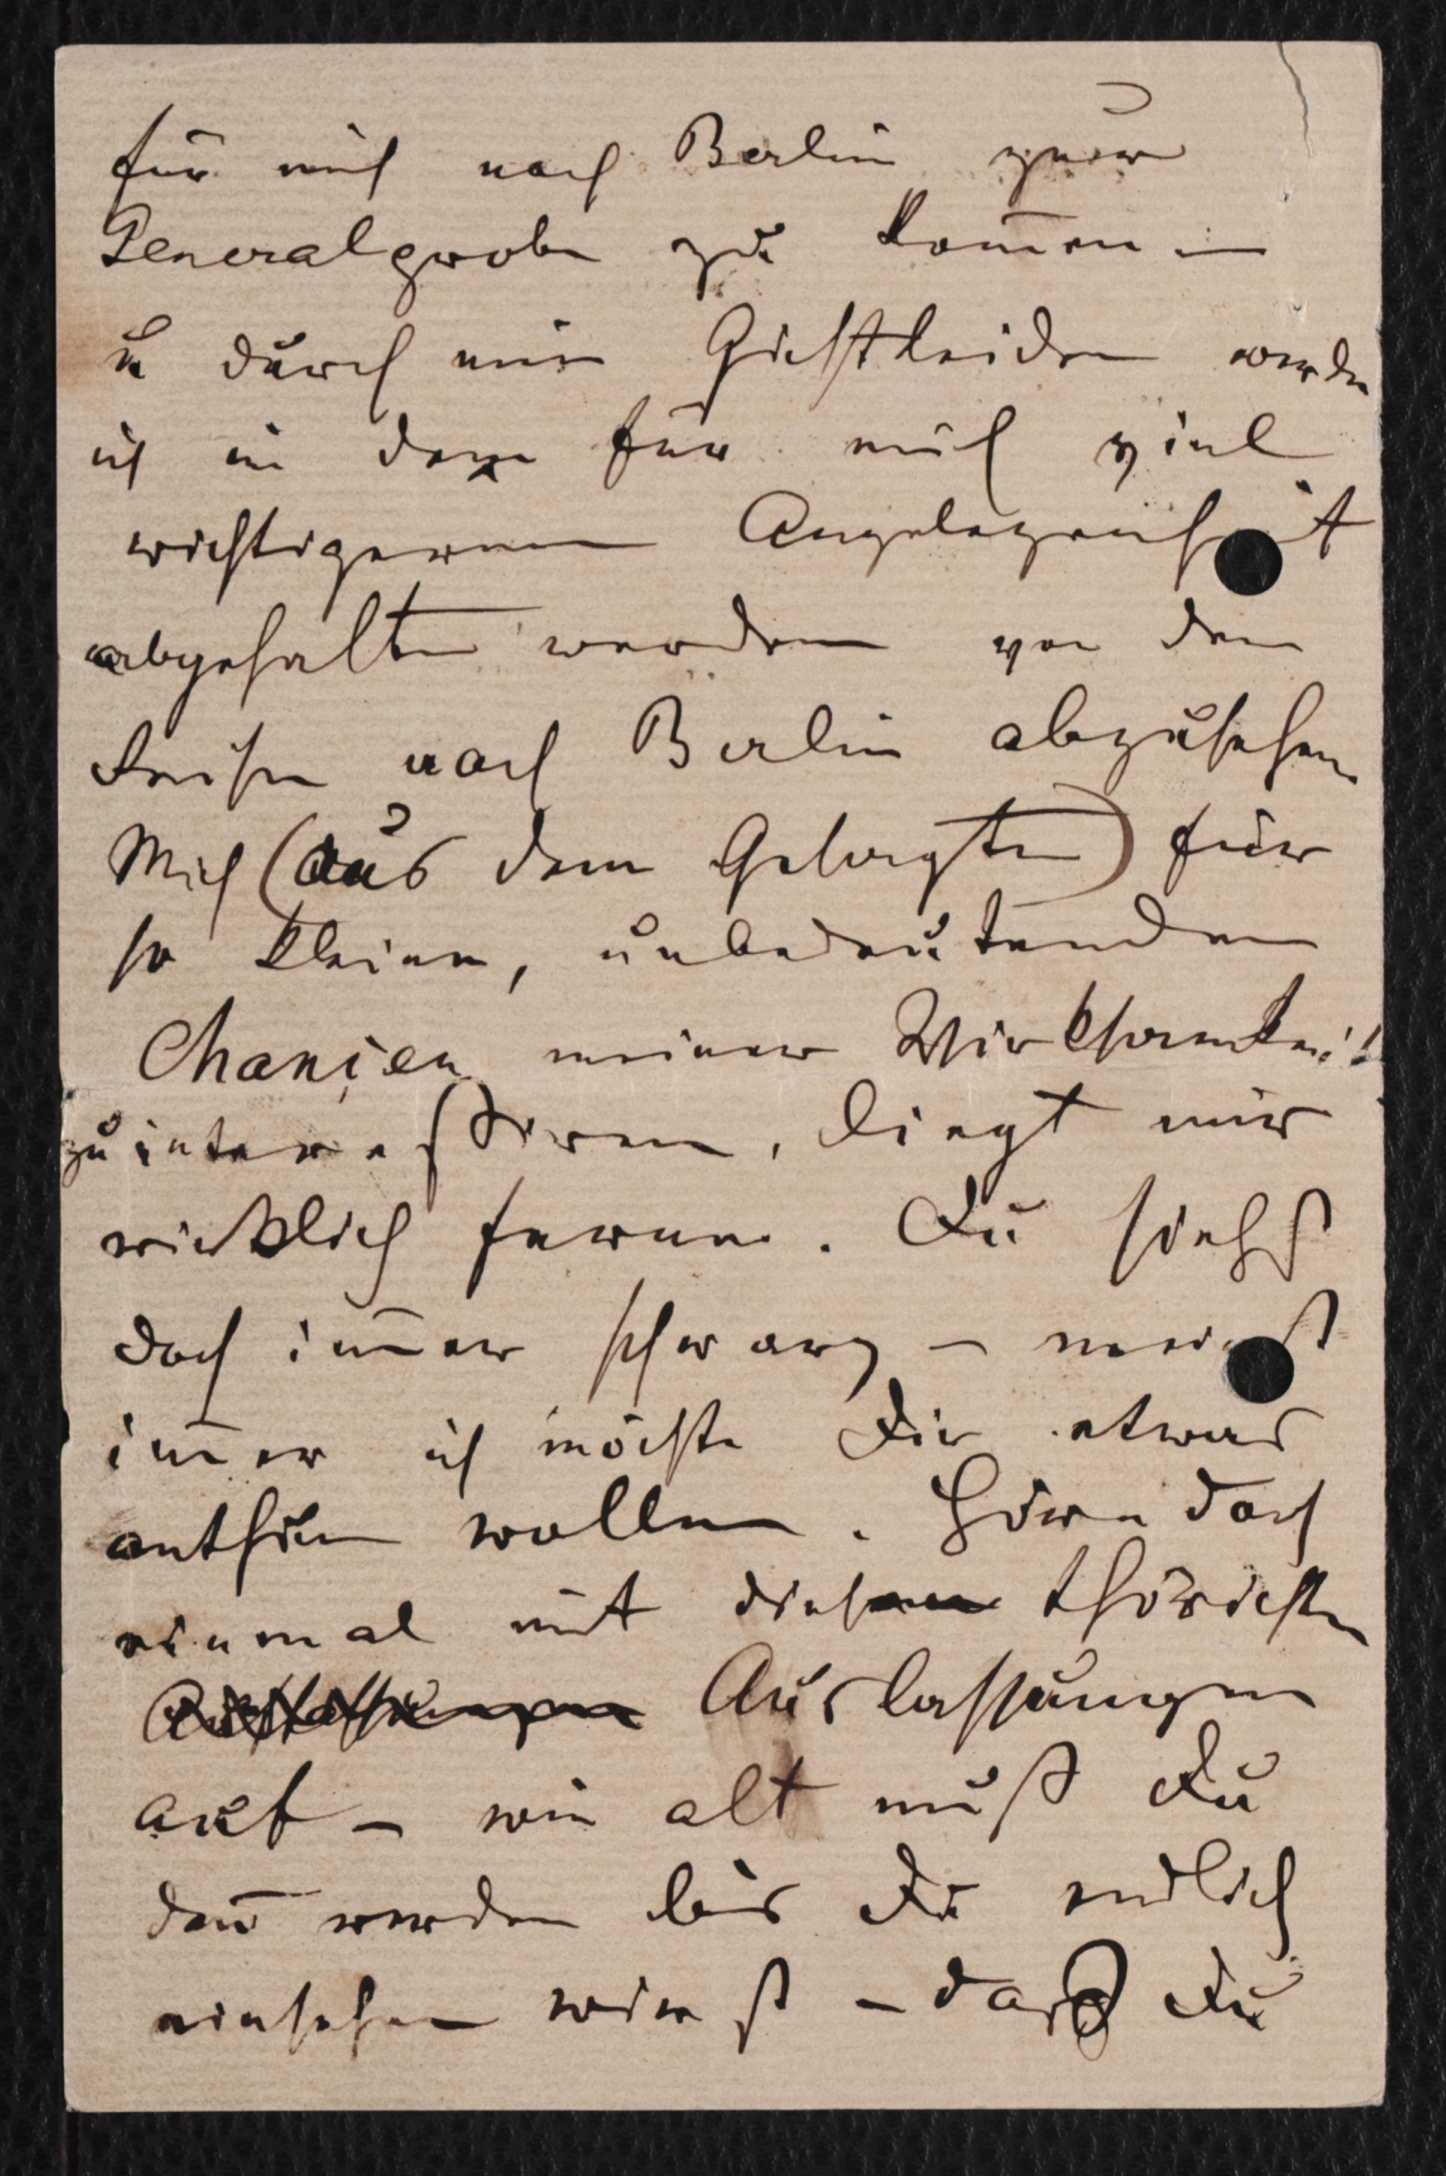 für mich nach Berlin zur
Generalprobe zu kommen –
u durch mein Gichtleiden werde
ich in der für mich viel
wichtigeren Angelegenheit
abgehalten werden von der
Reise nach Berlin abzusehen
Mich (aus dem Gesagten) für
so kleine, unbedeutenden
Chanzen meiner Wirksamkeit
zu interessiren, liegt mir
wirklich ferne. Du siehst
doch immer schwarz – meinst
immer ich möchte Dir etwas
anthun wollen. Höre doch
einmal mit diesen thörichten
Auslassungen
auf – wie alt mußt Du
denn werden bis Du endlich
einsehen wirst – daß Du